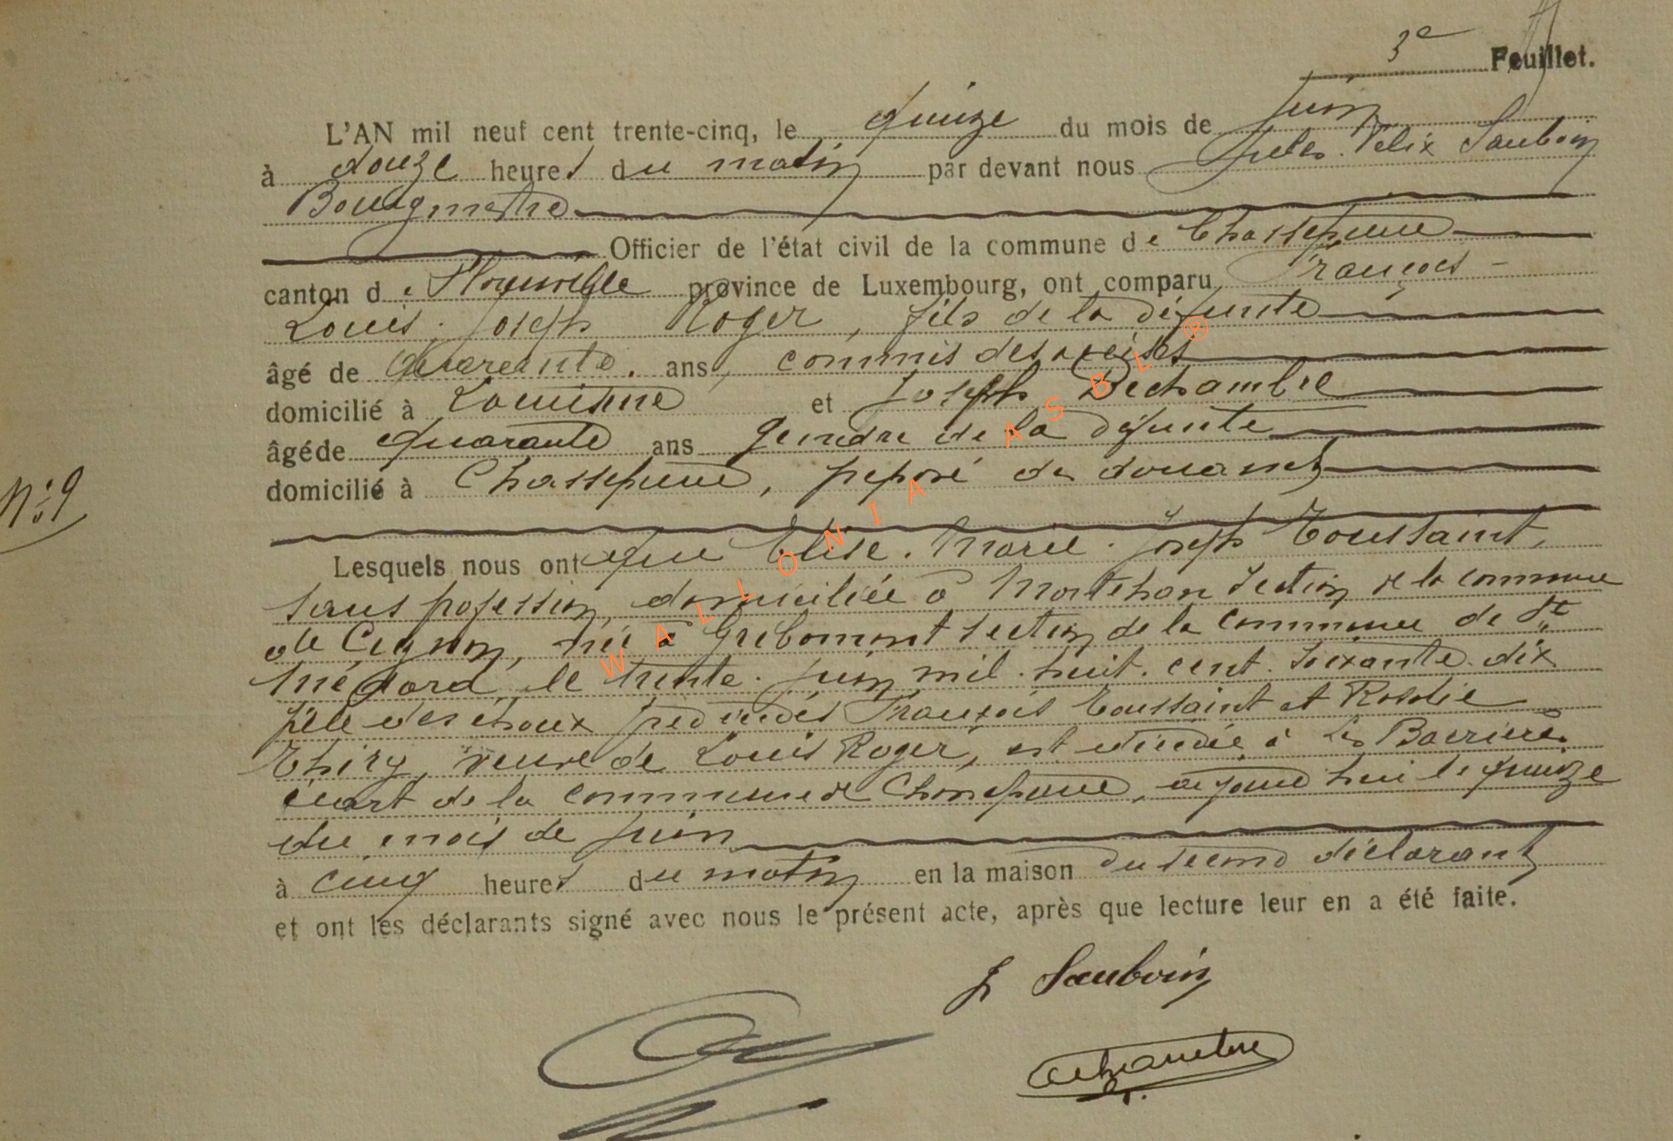 3e Feuillet.
L'AN mil neuf cent trente-cinq, le quinze du mois de Juin
à douze heures du matin par devant nous Jules Félix Sauboin
Bourgmestre
Officier de l'état civil de la commune de Chassepierre
canton de Florenville province de Luxembourg, ont comparu François
Louis Joseph Roger, fils de la défunte
âgé de quarante ans, commis des accises
domicilié à et Joseph Dechambre
âgé de quarante ans gendre de la défunte
domicilié à Chassepierre, préposé des douanes
N° 9
Lesquels nous ont que Elise Marie Joseph Toussaint,
sans profession, domiciliée à Mortehan section de la commune
de Cugnon, née à Gribomont section de la commune de St
Médard, le trente Juin mil huit cent soixante dix
fille des époux prédécédés François Toussaint et Rosalie
Thiry, veuve de Louis Roger, est décédée à Les Barrières
écart de la commune de Chassepierre, aujourd'hui le quinze
du mois de Juin
à cinq heures du matin en la maison du second déclarant
et ont les déclarants signé avec nous le présent acte, après que lecture leur en a été faite.
J Sauboin
Dechambre
WALLONIA ASBL ®